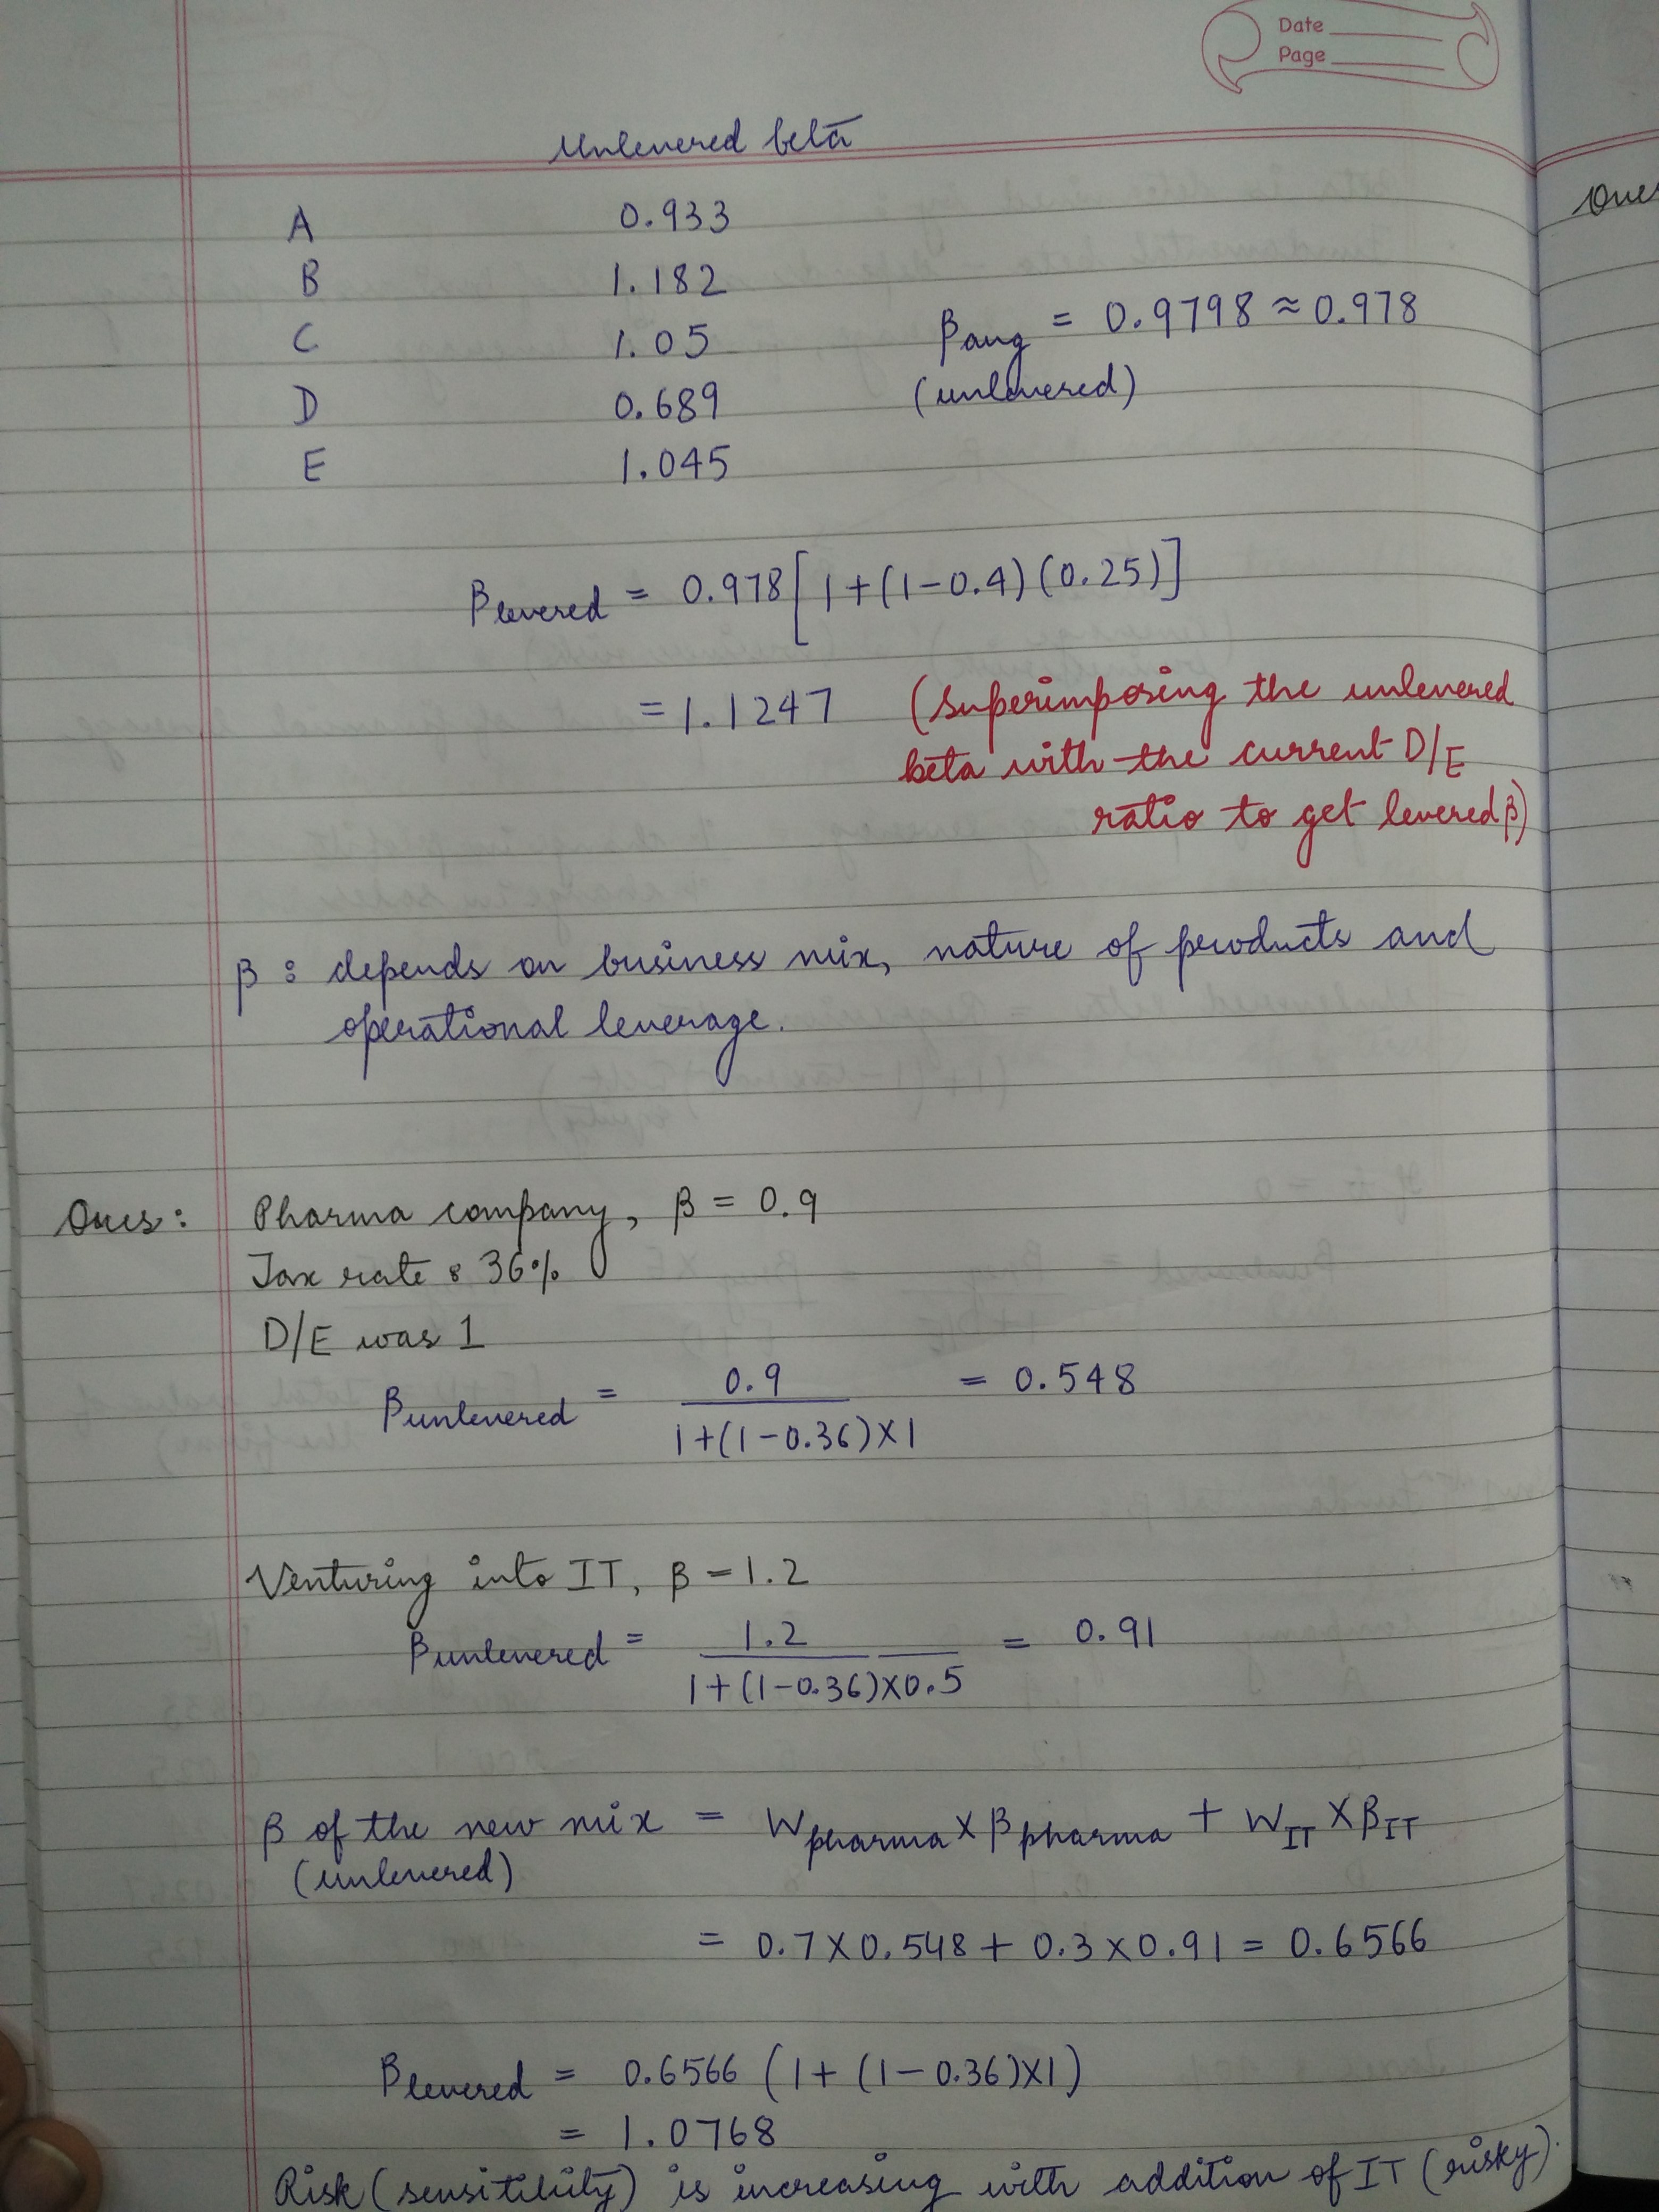 Date
Page
Unlevered beta
A 0.933
B 1.182
C 1.05
D 0.689
E 1.045
βavg = 0.9798 ≈ 0.978
(unlevered)
βlevered = 0.978[1+(1-0.4)(0.25)]
= 1.1247 (superimposing the unlevered
beta with the current D/E
ratio to get levered β)
β : depends on business mix, nature of products and
operational leverage.
Ques: Pharma company, β = 0.9
Tax rate : 36%
D/E was 1
βunlevered = 0.9 / 1+(1-0.36)×1 = 0.548
Venturing into IT, β = 1.2
βunlevered = 1.2 / 1+(1-0.36)×0.5 = 0.91
β of the new mix = Wpharma × βpharma + WIT × βIT
(unlevered)
= 0.7×0.548 + 0.3×0.91 = 0.6566
βlevered = 0.6566 (1+ (1-0.36)×1)
= 1.0768
Risk (sensitibility) is increasing with addition of IT (risky).
Ques